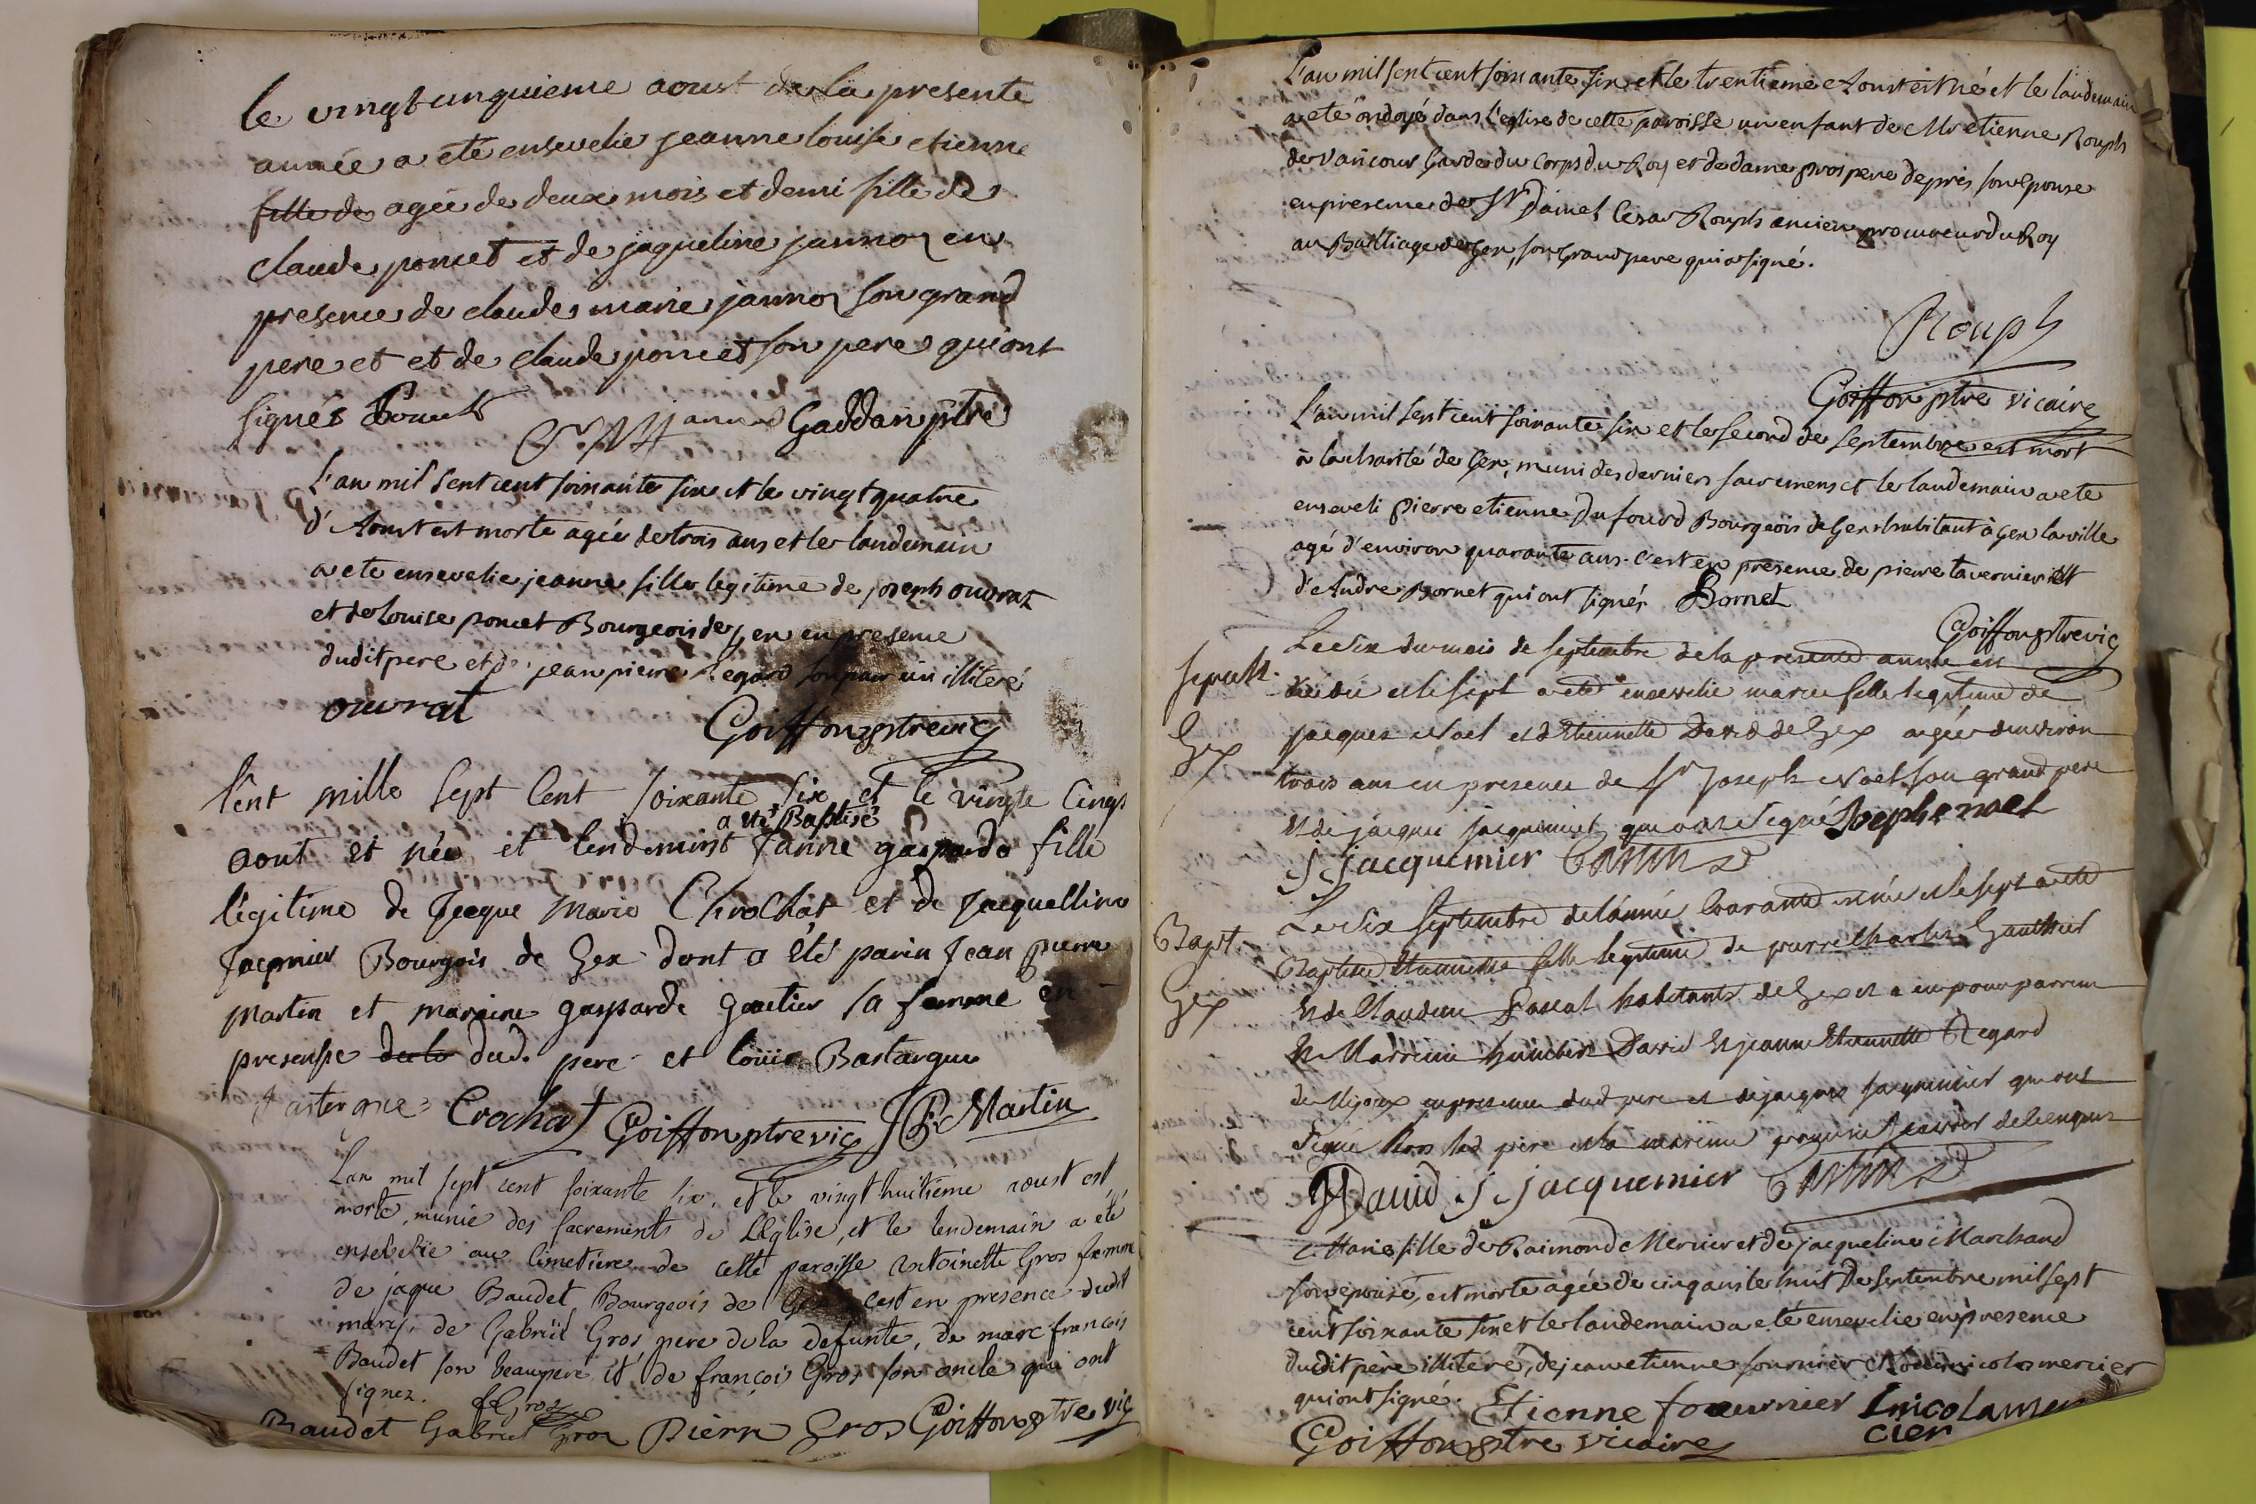 le vingt cinquieme aoust de la presente
année a eté ensevelie jeanne louise etienne
fille de agée de deux mois et demi fille de
claude poncet et de jaqueline jannoz en
presence de claude marie jannoz son grand
pere et et de claude poncet son pere qui ont
signés Gaddan ptre
L'an mil sept cent soixante six et le vingt quatre
d'Aoust est morte agée de trois ans et le landemain
a ete ensevelie jeanne fille legitime de joseph ouvrat
et de Louise poncet Bourgeois de Gex en presence
dudit pere et de jean pierre Regard son illiteré
ouvrat
Goiffon ptre vic
l'ent mille Sept Cent Soixante Six et le vingte Cinqs
a été Baptisé
aout et née et lendemint Janne gasparde fille
légitime de Jacque Marie Chrochat et de Jacquelline
Jacmier Bourgois de Gex dont a été parin Jean pierre
Martin et maraine gasparde gautier sa femme en
presense de la dud. pere et loüis Bastargue
Crochat Goiffon ptre vic JP. Martin
L'an mil sept cent soixante six, et le vingt huitiéme aoust est
morte, munie des sacrements de L'Eglise, et le lendemain a été
ensevelie au cimetiere de cette paroisse Antoinette Gros femme
de jaque Baudet Bourgeois de Gex c'est en presence dudit
mary, de Gabriël Gros pere de la defunte, de marc françois
Baudet son beaupere et de françois Gros son oncle qui ont
signez. f Gros
Baudet Gabriel Gros Pierre Gros Goiffon ptre vic
L'an mil sept cent soixante six et le trentieme Aoust est né et le landemain
a eté ondoyé dans l'eglise de cette paroisse un enfant de Mr etienne Rouph
de varicour Garde du Corps du Roy et de dame prospere Deprés son epouse
en presence de Sr Daniel Cesar Rouph ancien procureur du Roy
au Bailliage de Gex, son Grand pere qui a signé.
Rouph
Goiffon ptre vicaire
L'an mil sept cent soixante six et le second de septembre est mort
à la charité de Gex, muni des derniers sacremens et le landemain a ete
enseveli pierre etienne Dufourd Bourgeois de Gex habitant à Gex la ville
agé d'environ quarante ans. c'est en presence de pierre tavernier et
d'Andre Bornet qui ont signés Bornet
Goiffon ptre vic
Sepult.
Gex
Le six du mois de septembre de la presente année est
decedé et le sept a eté ensevelie marie fille legitime de
jacques Noel et d'Etiennette David de Gex agée denviron
trois ans en presence de Sr Joseph Noel son grand pere
et de jacques jacquemier qui ont signé Joseph noel
J jacquemier
Bapt.
Gex
Le six septembre de l'année courante est née et le sept a eté
Baptisée Etiennette fille legitime de pierre Charles Gauthier
et de Claudine Pascal habitants de Gex et a eu pour parrein
et Marreine humbert David et jeanne Etiennette Regard
de Mijoux en presence dud pere et de jacques jacquemier qui ont
signé hors led pere et la mareine pour ne scavoir de ce enquis
HDavid J Jacquemier
Marie fille de Raimond Mercier et de jacqueline Marchand
son epouse, est morte agée de cinq ans le huit De septembre mil sept
cent soixante six et le landemain a eté ensevelie en presence
dudit père illiteré, de jean etienne fournier et de nicolas mercier
qui ont signé. Etienne fournier nicola mer
cier
Goiffon ptre vicaire